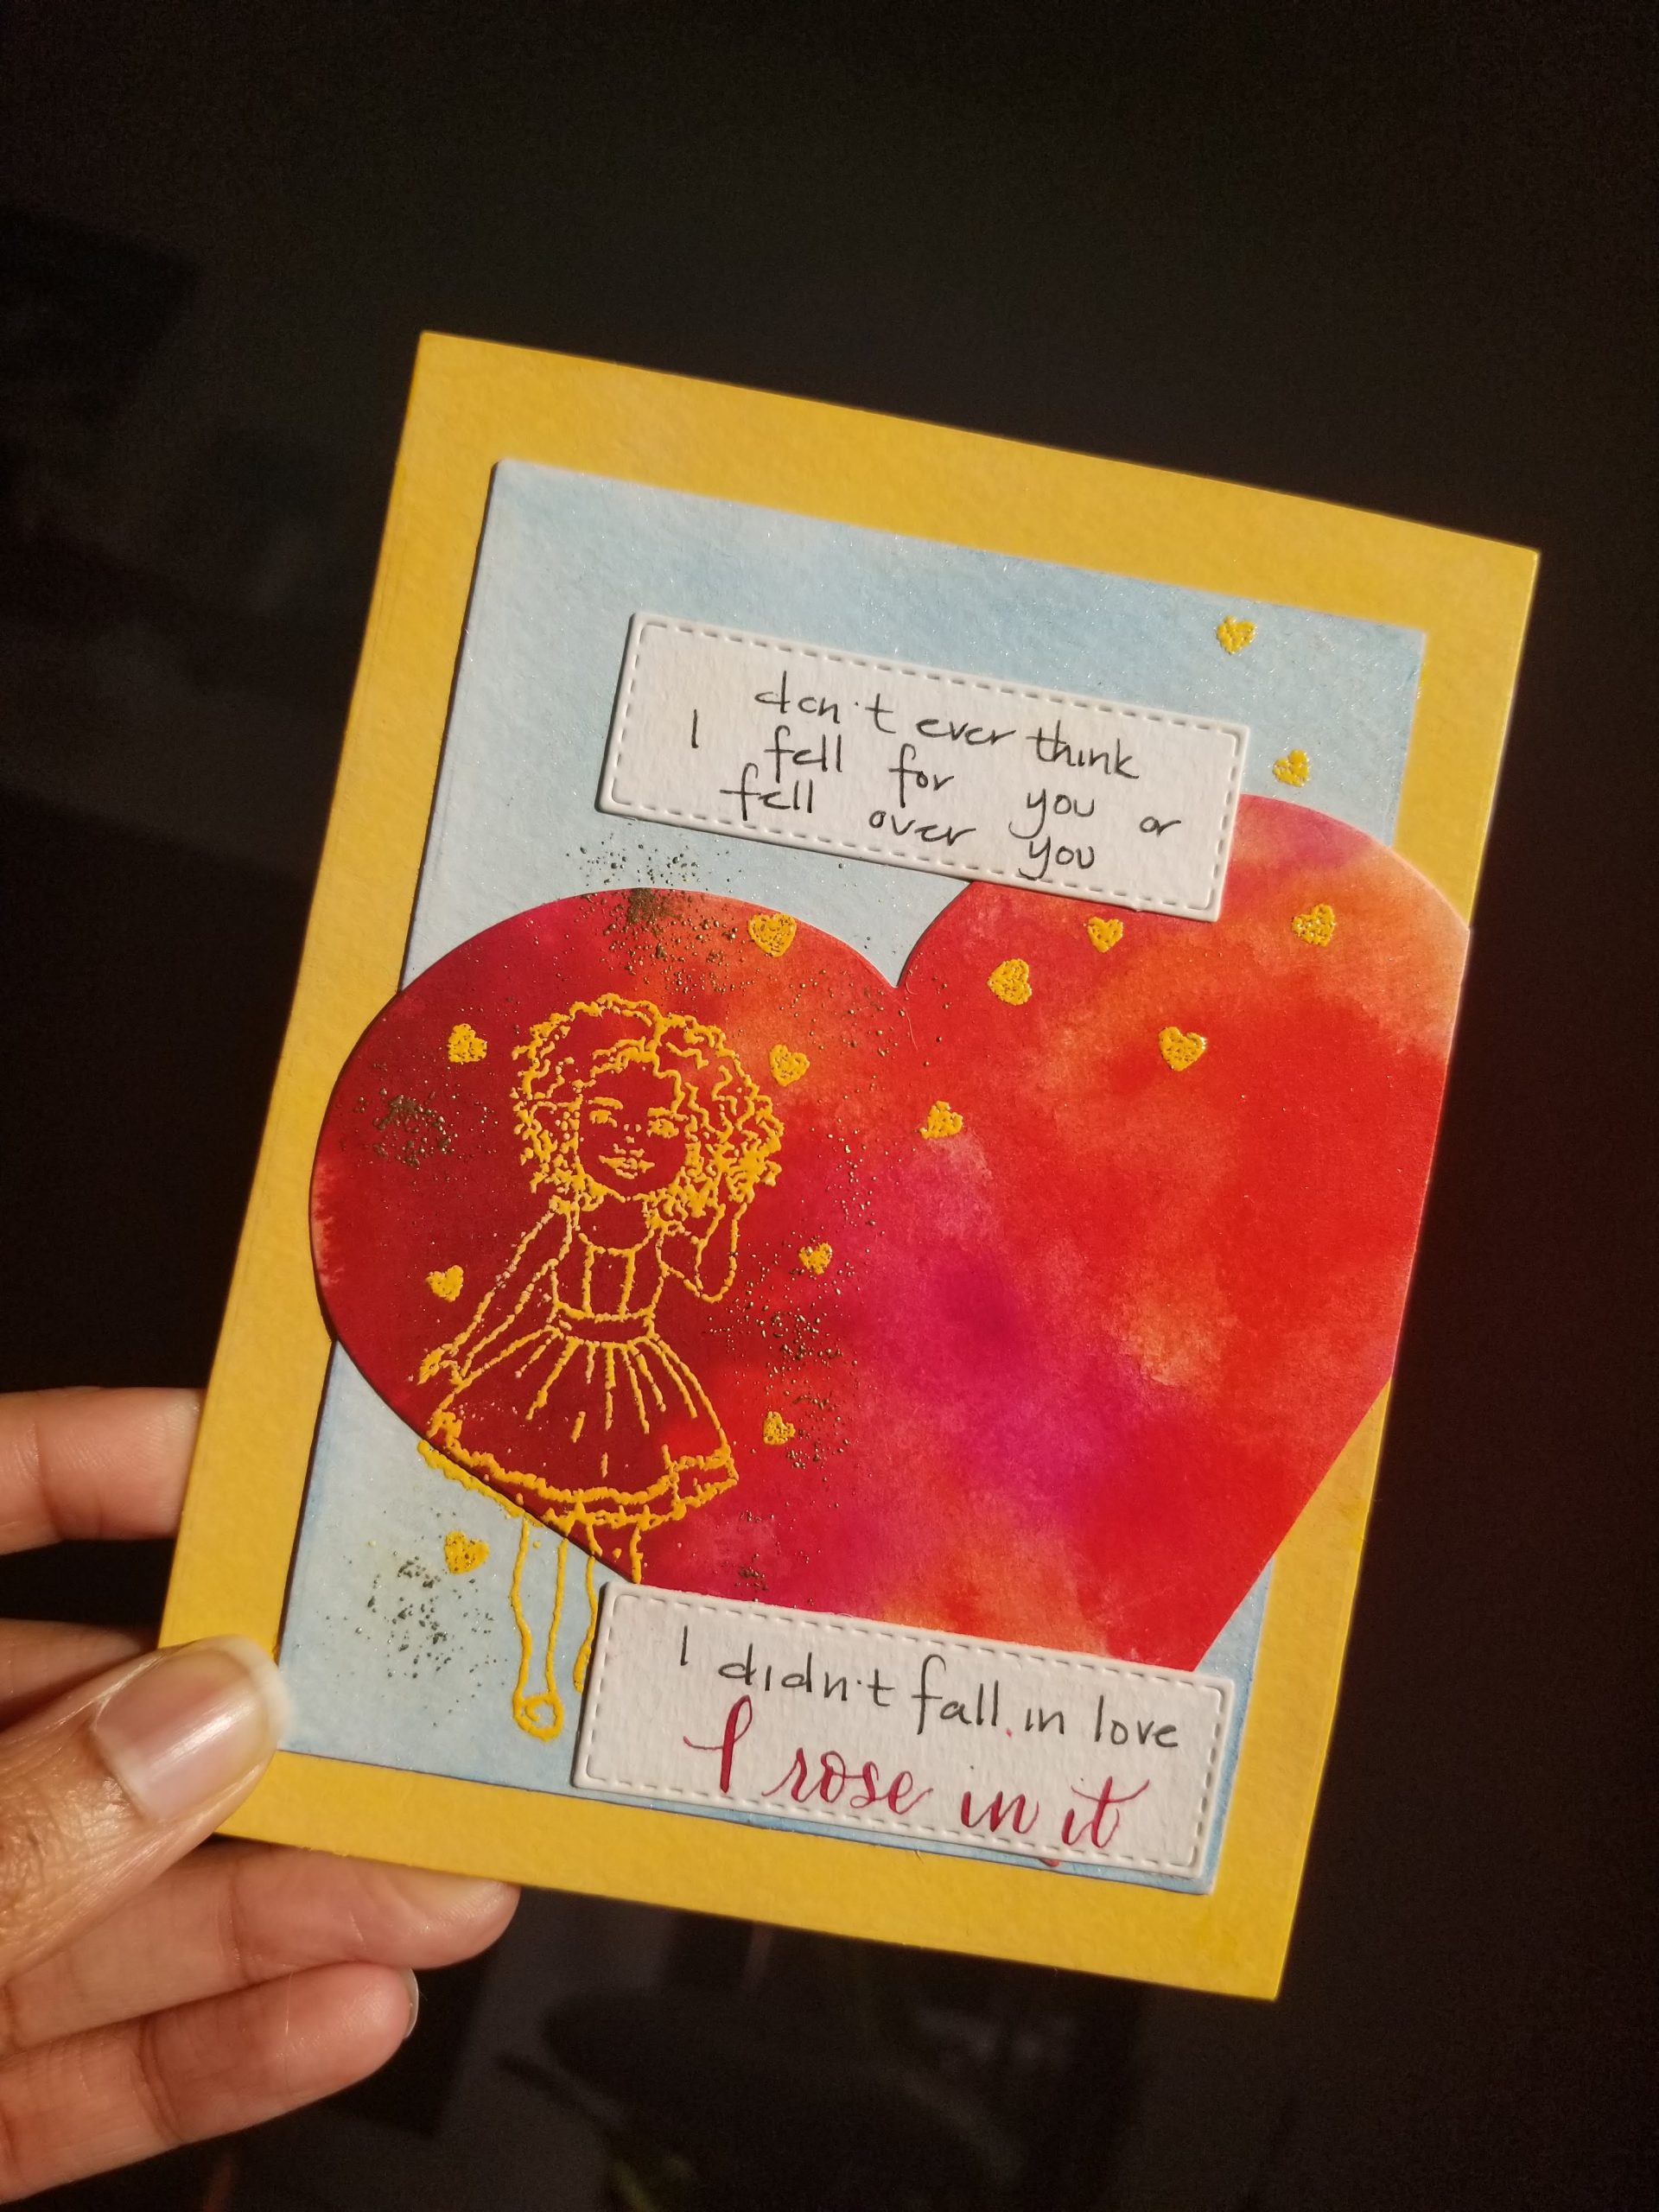 don't ever think
I fell for you or
fell over you
I didn't fall in love
I rose in it